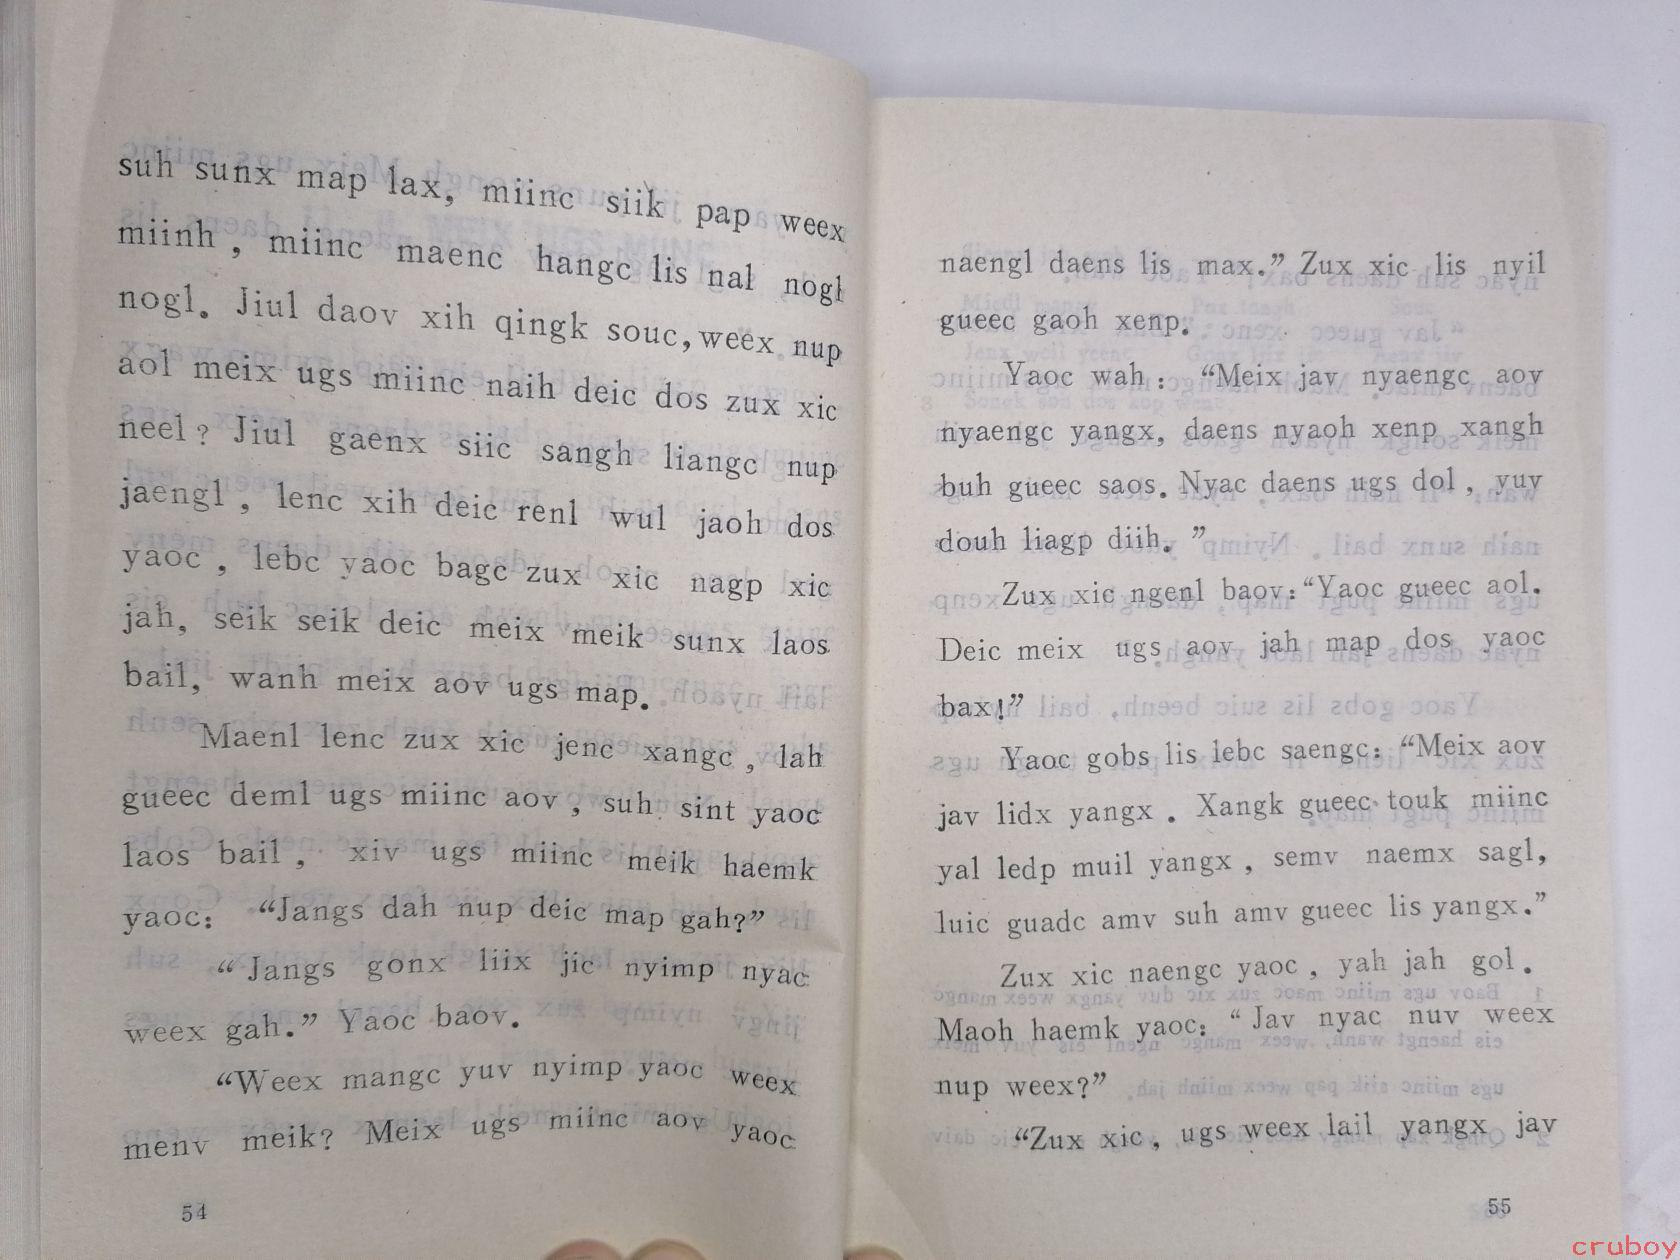 suh sunx map lax, miinc siik pap weex
miinh, miinc maenc hangc lis nal nogl
nogl. Jiul daov xih qingk souc, weex nup
aol meix ugs miinc naih deic dos zux xic
neel? Jiul gaenx siic sangh liangc nup
jaengl, lenc xih deic renl wul jaoh dos
yaoc, lebc yaoc bagc zux xic nagp xic
jah, seik seik deic meix meik sunx laos
bail, wanh meix aov ugs map.
Maenl lenc zux xic jenc xangc, lah
gueec deml ugs miinc aov, suh sint yaoc
laos bail, xiv ugs miinc meik haemk
yaoc: “Jangs dah nup deic map gah?”
“Jangs gonx liix jic nyimp nyac
weex gah.” Yaoc baov.
“Weex mangc yuv nyimp yaoc weex
menv meik? Meix ugs miinc aov yaoc
54
naengl daens lis max.” Zux xic lis nyil
gueec gaoh xenp.
Yaoc wah: “Meix jav nyaengc aov
nyaengc yangx, daens nyaoh xenp xangh
buh gueec saos. Nyac daens ugs dol, yuv
douh liagp diih.”
Zux xic ngenl baov: “Yaoc gueec aol.
Deic meix ugs aov jah map dos yaoc
bax!”
Yaoc gobs lis lebc saengc: “Meix aov
jav lidx yangx. Xangk gueec touk miinc
yal ledp muil yangx, semv naemx sagl,
luic guadc amv suh amv gueec lis yangx.”
Zux xic naengc yaoc, yah jah gol.
Maoh haemk yaoc: “Jav nyac nuv weex
nup weex?”
“Zux xic, ugs weex lail yangx jav
55
cruboy